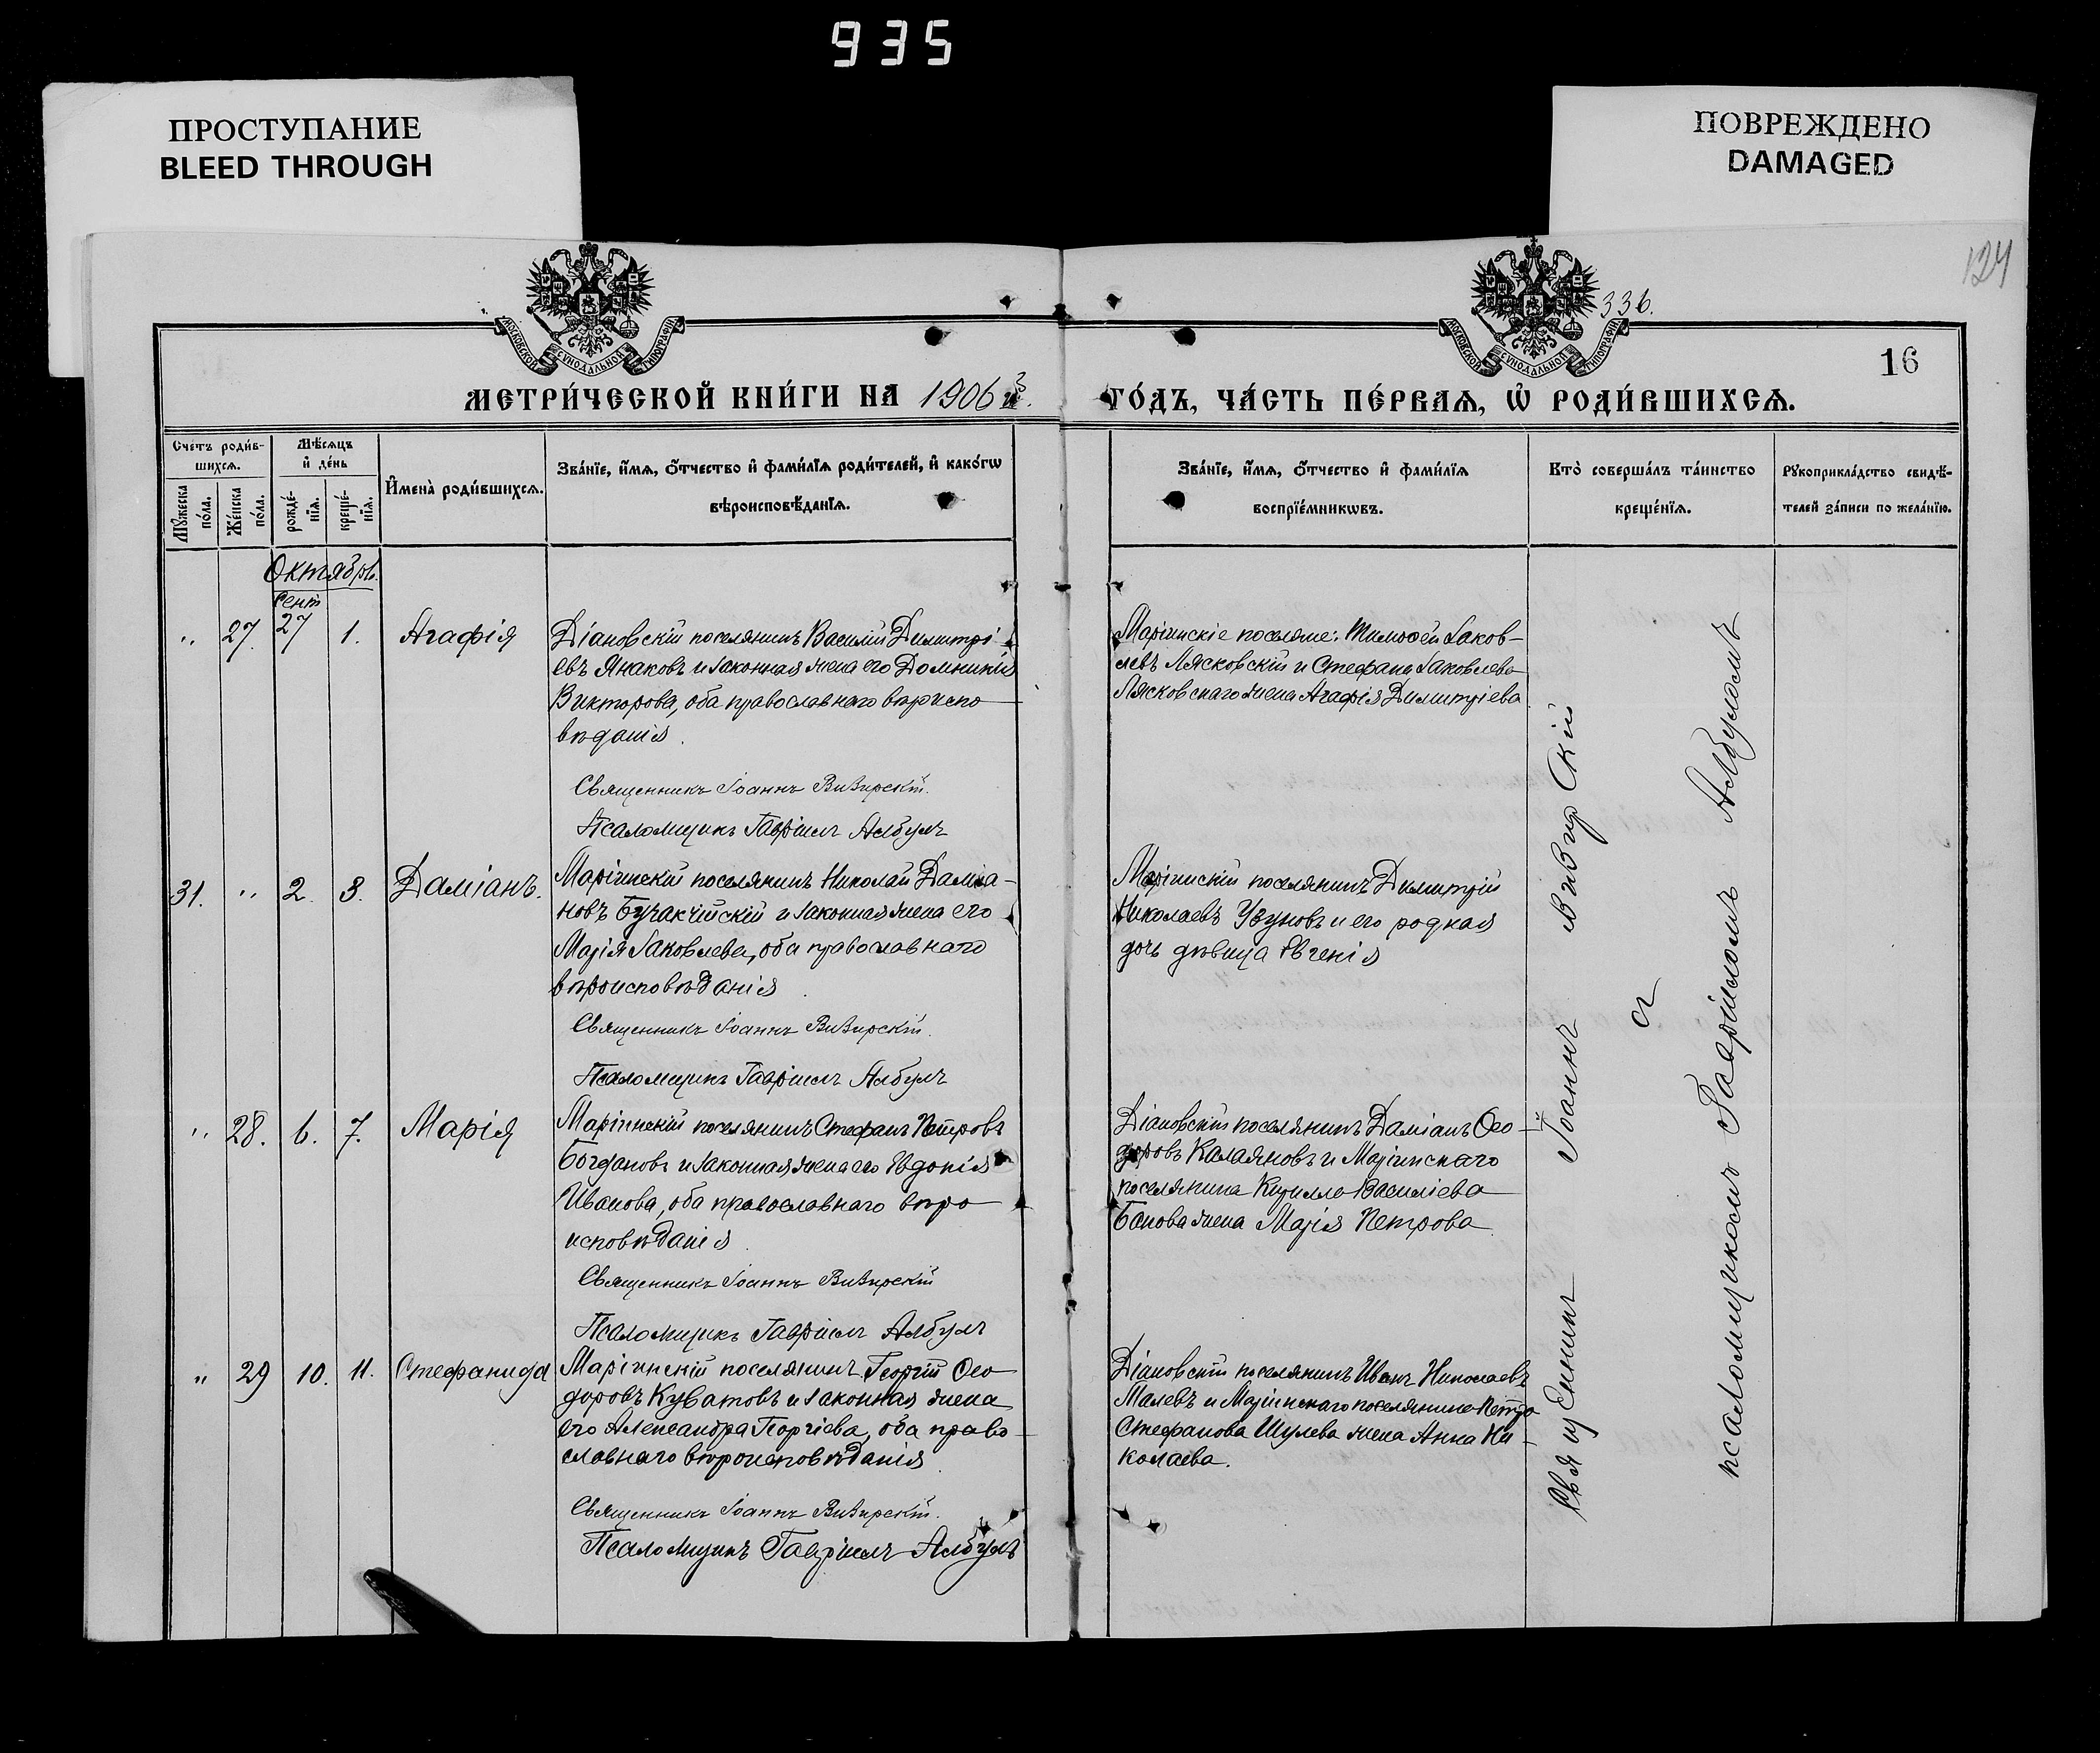 935
ПРОСТУПАНИЕ
BLEED THROUGH
ПОВРЕЖДЕНО
DAMAGED
124
336.
16
МОСКОВСКОЙ СѴНОДАЛЬНОЙ ТИПОГРАФІИ
МОСКОВСКОЙ СѴНОДАЛЬНОЙ ТИПОГРАФІИ
МЕТРИ́ЧЕСКОЙ КНИ́ГИ НА 1906
ГО́ДЪ, ЧА́СТЬ ПЕ́РВАѦ, Ѡ҆ РОДИ́ВШИХСѦ.
Счетъ роди́в-
шихсѧ.
Мꙋ́жеска по́ла.
Же́нска по́ла.
Мѣ́сѧцъ
и҆ де́нь
рожде́-
нїѧ.
креще́-
нїѧ.
И҆мена̀ роди́вшихсѧ.
Зва́нїе, и҆́мѧ, ѻ҆́тчество и҆ фами́лїѧ роди́телей, и҆ како́гѡ
вѣроисповѣ́данїѧ.
Зва́нїе, и҆́мѧ, ѻ҆́тчество и҆ фами́лїѧ
воспрїе́мникѡвъ.
Кто̀ соверша́лъ та́инство
креще́нїѧ.
Рꙋкоприкла́дство свидѣ́-
телей за́писи по жела́нїю.
Октябрь
Сент
" 27. 27 1. Агафія
Діановскій поселянинъ Василій Димитрі
евъ Янаковъ и законная жена его Домникія
Викторова, оба православнаго вѣроиспо
вѣданія.
Священникъ Іоаннъ Визирскій.
Псаломщикъ Гавріилъ Албулъ
Маріинскіе поселяне: Тимофей Іаков-
левъ Лясковскій и Стефана Іаковлева
Лясковскаго жена Агафія Димитріева
31. " 2. 3. Даміанъ.
Маріинскій поселянинъ Николай Даміа-
новъ Бучакчійскій и законная жена его
Марія Іаковлева, оба православнаго
вѣроисповѣданія
Священникъ Іоаннъ Визирскій.
Псаломщикъ Гавріилъ Албулъ
Маріинскій поселянинъ Димитрій
Николаевъ Узуновъ и его родная
дочь дѣвица Евгенія
" 28. 6. 7. Марія
Маріинскій поселянинъ Стефанъ Петровъ
Богдановъ и законная жена его Евдокія
Иванова, оба православнаго вѣро
исповѣданія
Священникъ Іоаннъ Визирскій
Псаломщикъ Гавріилъ Албулъ
Діановскій поселянинъ Даміанъ Ѳео-
доровъ Калаяновъ и Маріинскаго
поселянина Кирилла Василіева
Банова жена Марія Петрова
" 29 10. 11. Стефанида
Маріинскій поселянинъ Георгій Ѳео
доровъ Куватовъ и законная жена
его Александра Георгіева, оба право-
славнаго вѣроисповѣданія
Священникъ Іоаннъ Визирскій.
Псаломщикъ Гавріилъ Албулъ
Діановскій поселянинъ Иванъ Николаевъ
Малевъ и Маріинскаго поселянина Петра
Стефанова Шулева жена Анна Ни-
колаева.
Священникъ Іоаннъ Визирскій
съ
псаломщикомъ Гавріиломъ Албуломъ